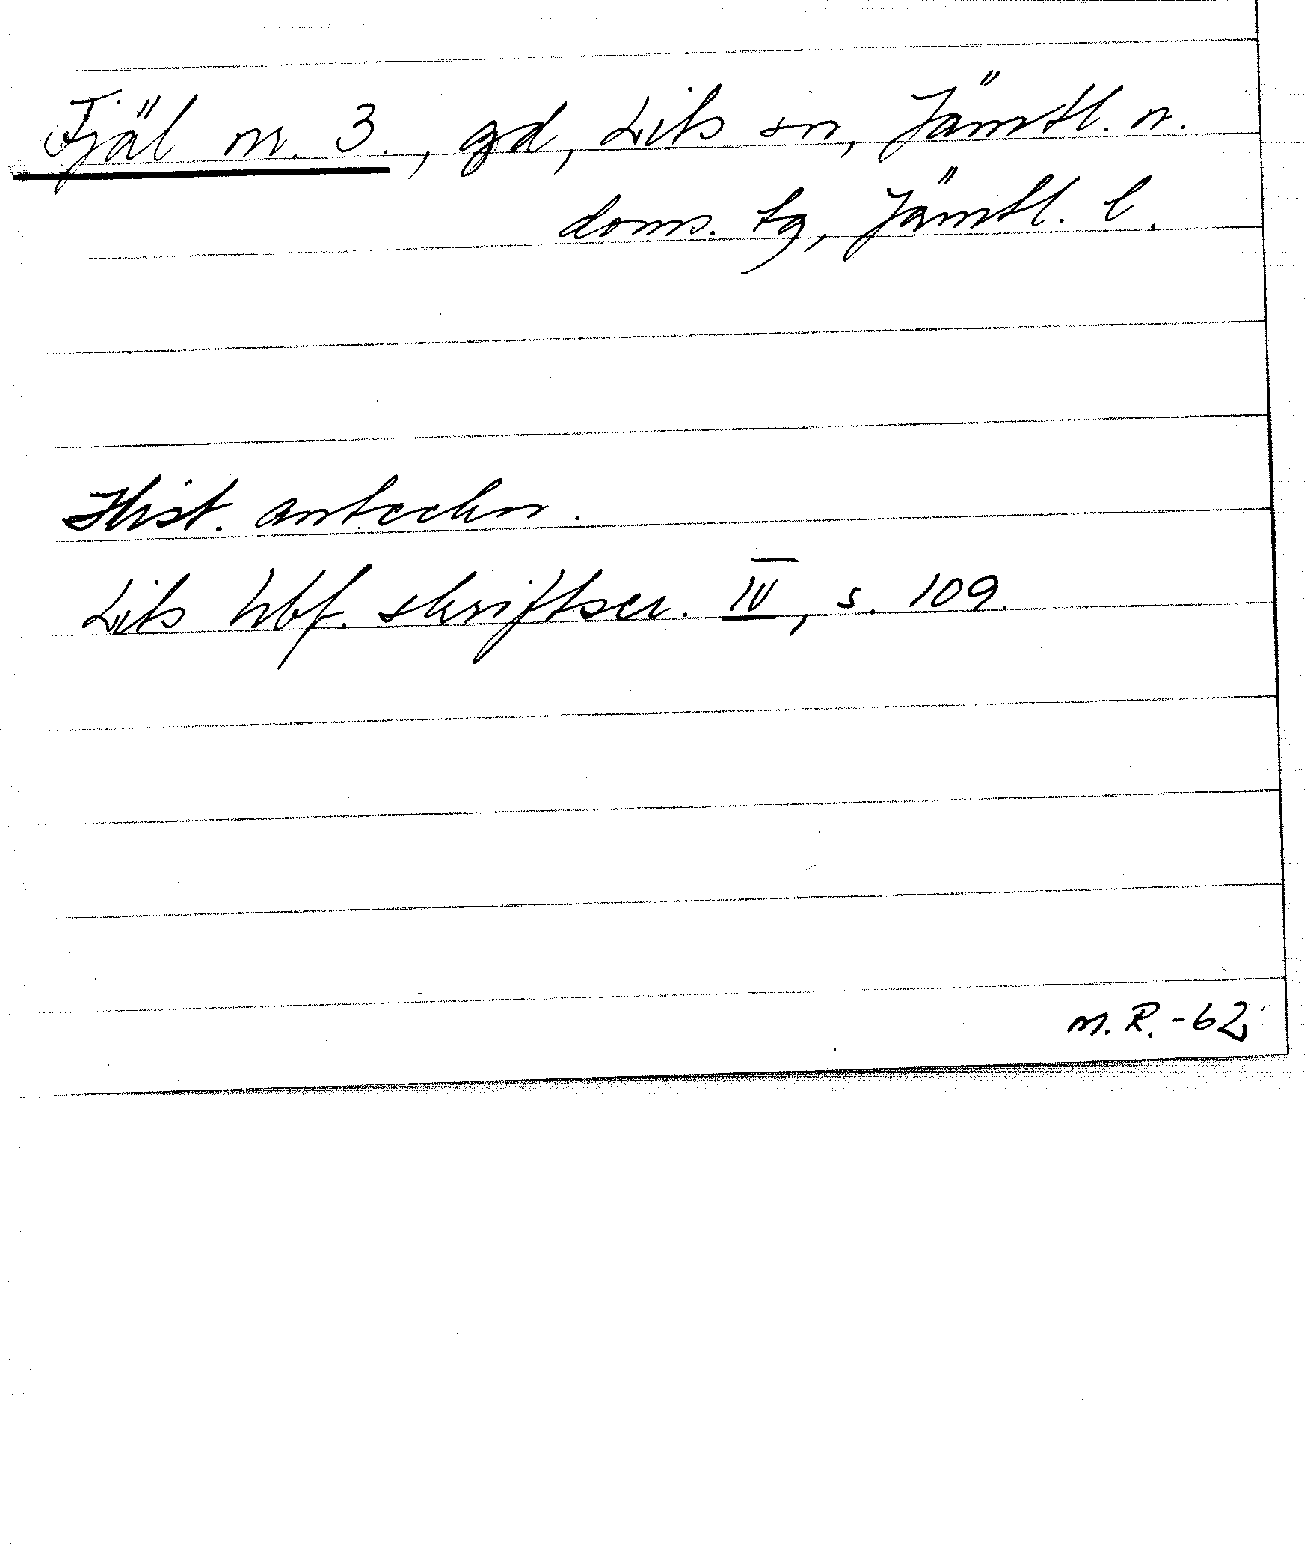 Fjäl nr. 3., gd, Lits sn, Jämtl. n.
doms. tg, Jämtl. l.
Hist. anteckn.
Lits hbf. skriftser. IV, s. 109.
M.R.-62